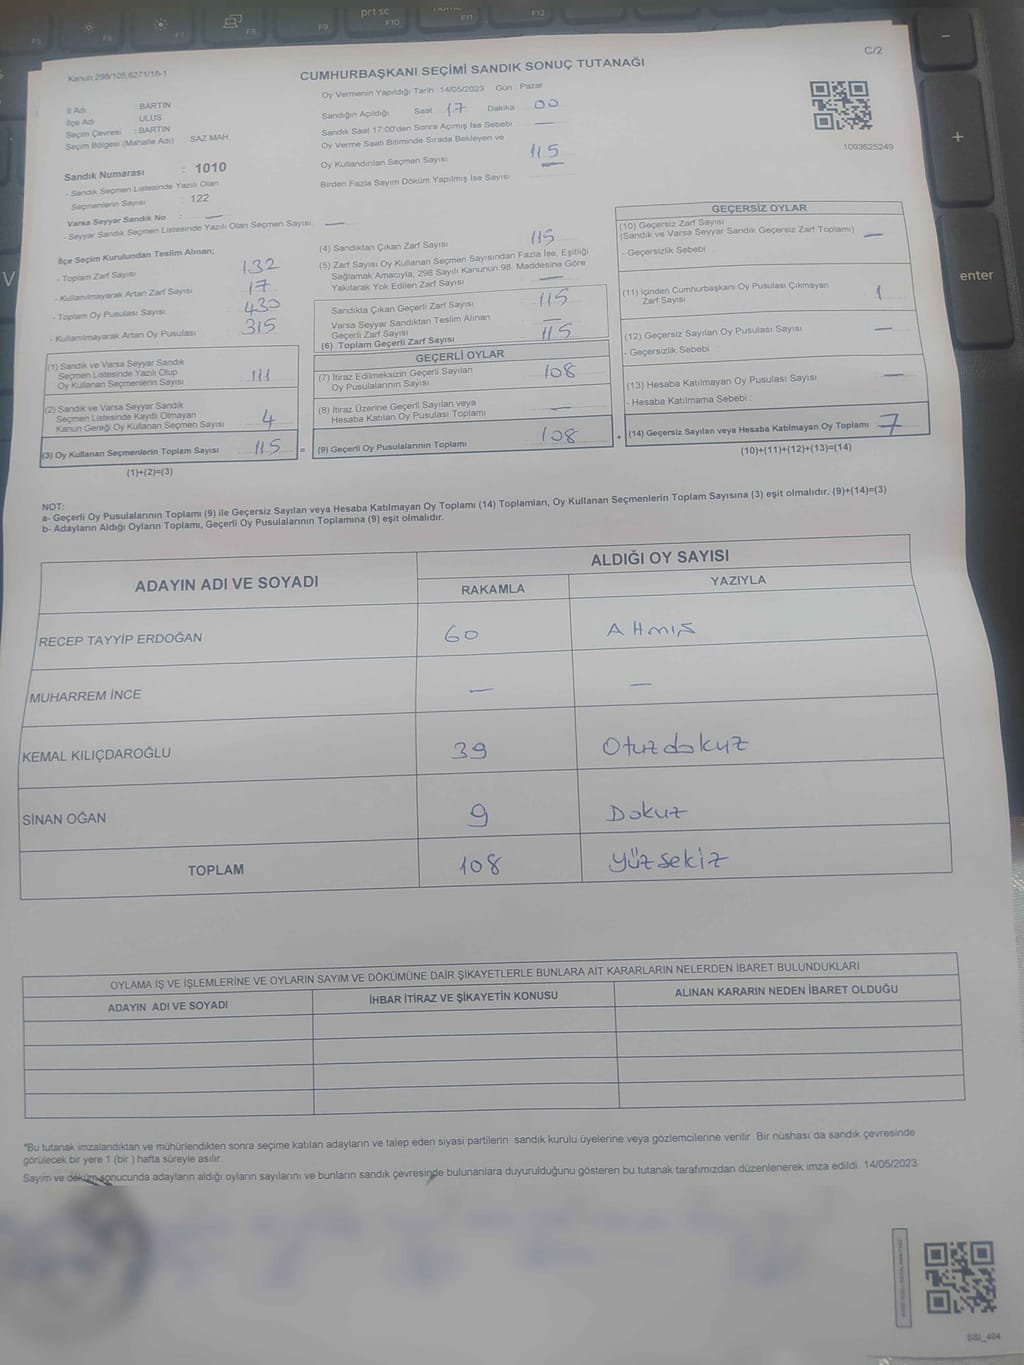 prt sc
F5 F6 F7 F8 F9 F10 F11 F12
Kanun 298/105,6271/18-1
C/2
CUMHURBAŞKANI SEÇİMİ SANDIK SONUÇ TUTANAĞI
İl Adı : BARTIN
İlçe Adı ULUS
Seçim Çevresi : BARTIN
Seçim Bölgesi (Mahalle Adı) SAZ MAH.
Sandık Numarası : 1010
- Sandık Seçmen Listesinde Yazılı Olan
Seçmenlerin Sayısı : 122
Varsa Seyyar Sandık No : —
- Seyyar Sandık Seçmen Listesinde Yazılı Olan Seçmen Sayısı: —
Oy Vermenin Yapıldığı Tarih :14/05/2023 Gün : Pazar
Sandığın Açıldığı Saat 17 Dakika 00
Sandık Saat 17:00'den Sonra Açımış İse Sebebi —
Oy Verme Saati Bitiminde Sırada Bekleyen ve
Oy Kullandırılan Seçmen Sayısı 115
Birden Fazla Sayım Döküm Yapılmış İse Sayısı —
1093625249
İlçe Seçim Kurulundan Teslim Alınan;
- Toplam Zarf Sayısı 132
- Kullanılmayarak Artan Zarf Sayısı 17
- Toplam Oy Pusulası Sayısı 430
- Kullanılmayarak Artan Oy Pusulası 315
(1) Sandık ve Varsa Seyyar Sandık
Seçmen Listesinde Yazılı Olup
Oy Kullanan Seçmenlerin Sayısı 111
(2) Sandık ve Varsa Seyyar Sandık
Seçmen Listesinde Kayıtlı Olmayan
Kanun Gereği Oy Kullanan Seçmen Sayısı 4
(3) Oy Kullanan Seçmenlerin Toplam Sayısı 115 =
(1)+(2)=(3)
(4) Sandıktan Çıkan Zarf Sayısı 115
(5) Zarf Sayısı Oy Kullanan Seçmen Sayısından Fazla İse, Eşitliği
Sağlamak Amacıyla, 298 Sayılı Kanunun 98. Maddesine Göre
Yakılarak Yok Edilen Zarf Sayısı —
Sandıkta Çıkan Geçerli Zarf Sayısı 115
Varsa Seyyar Sandıktan Teslim Alınan
Geçerli Zarf Sayısı —
(6) Toplam Geçerli Zarf Sayısı 115
GEÇERLİ OYLAR
(7) İtiraz Edilmeksizin Geçerli Sayılan
Oy Pusulalarının Sayısı 108
(8) İtiraz Üzerine Geçerli Sayılan veya
Hesaba Katılan Oy Pusulası Toplamı —
(9) Geçerli Oy Pusulalarının Toplamı 108 +
GEÇERSİZ OYLAR
(10) Geçersiz Zarf Sayısı
(Sandık ve Varsa Seyyar Sandık Geçersiz Zarf Toplamı) —
- Geçersizlik Sebebi :
(11) İçinden Cumhurbaşkanı Oy Pusulası Çıkmayan
Zarf Sayısı 1
(12) Geçersiz Sayılan Oy Pusulası Sayısı —
- Geçersizlik Sebebi :
(13) Hesaba Katılmayan Oy Pusulası Sayısı —
- Hesaba Katılmama Sebebi :
(14) Geçersiz Sayılan veya Hesaba Katılmayan Oy Toplamı 7
(10)+(11)+(12)+(13)=(14)
NOT:
a- Geçerli Oy Pusulalarının Toplamı (9) ile Geçersiz Sayılan veya Hesaba Katılmayan Oy Toplamı (14) Toplamları, Oy Kullanan Seçmenlerin Toplam Sayısına (3) eşit olmalıdır. (9)+(14)=(3)
b- Adayların Aldığı Oyların Toplamı, Geçerli Oy Pusulalarının Toplamına (9) eşit olmalıdır.
ADAYIN ADI VE SOYADI ALDIĞI OY SAYISI
RAKAMLA YAZIYLA
RECEP TAYYİP ERDOĞAN 60 Altmış
MUHARREM İNCE — —
KEMAL KILIÇDAROĞLU 39 Otuzdokuz
SİNAN OĞAN 9 Dokuz
TOPLAM 108 Yüzsekiz
OYLAMA İŞ VE İŞLEMLERİNE VE OYLARIN SAYIM VE DÖKÜMÜNE DAİR ŞİKAYETLERLE BUNLARA AİT KARARLARIN NELERDEN İBARET BULUNDUKLARI
ADAYIN ADI VE SOYADI İHBAR İTİRAZ VE ŞİKAYETİN KONUSU ALINAN KARARIN NEDEN İBARET OLDUĞU
*Bu tutanak imzalandıktan ve mühürlendikten sonra seçime katılan adayların ve talep eden siyasi partilerin sandık kurulu üyelerine veya gözlemcilerine verilir. Bir nüshası da sandık çevresinde
görülecek bir yere 1 (bir ) hafta süreyle asılır.
Sayım ve döküm sonucunda adayların aldığı oyların sayılarını ve bunların sandık çevresinde bulunanlara duyurulduğunu gösteren bu tutanak tarafımızdan düzenlenerek imza edildi. 14/05/2023
SSI_404
enter